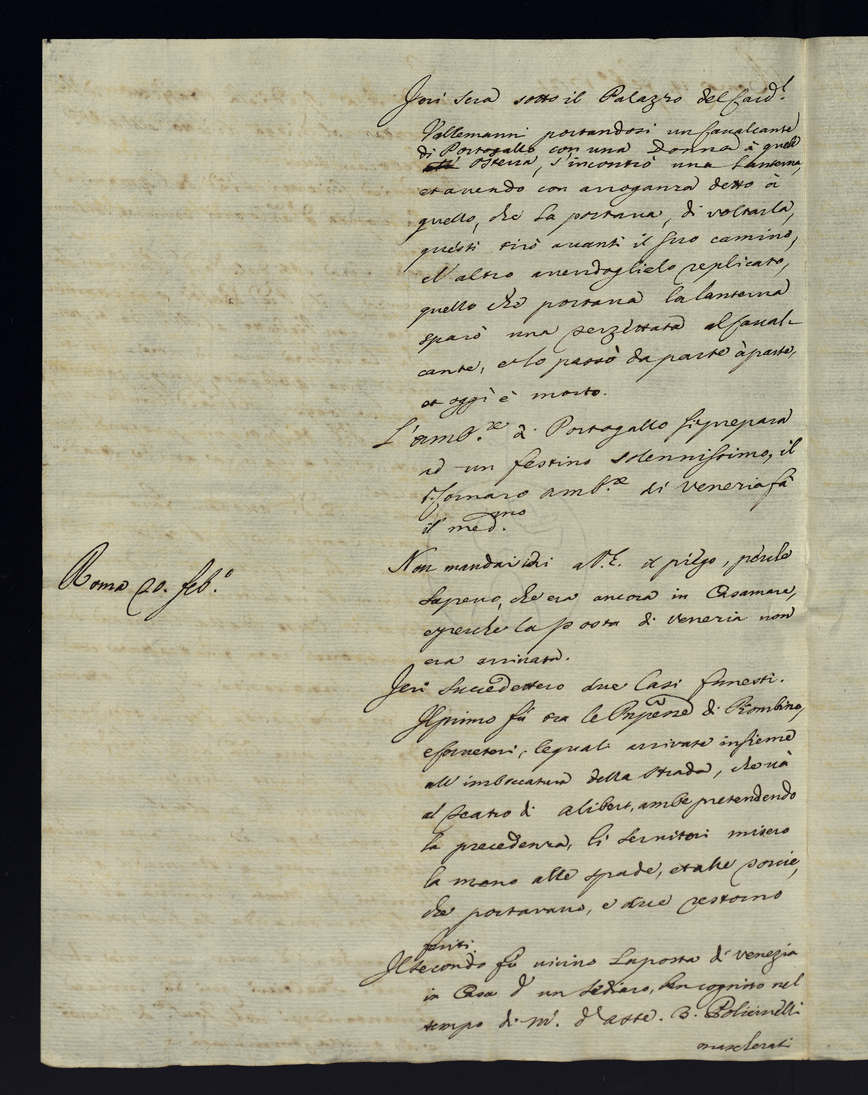 Jeri sera sotto il Palazzo del Card.l
Vallemanni portandosi un Cavalcante
di Portogallo con una Donna à quell
osteria, s'incontrò una lanterna,
et avendo con arroganza detto à
quello, che la portava, di voltarla,
questi tirò avanti il suo camino,
e l'altro avendoglielo replicato,
quello che portava la lanterna
sparò una terzettata al Caval-
cante, e lo passò da parte à parte,
et oggi è morto.
L'amb.re di Portogallo si prepara
ad un festino solennissimo, il
Cornaro amb.re di Venezia fà
il med.mo
Roma 20. feb.o
Non mandai a V.E. il piego, perche
sapevo, che era ancora in Casamare,
e perche la posta di Venezia non
era arrivata.
Jeri succedettero due Casi funesti.
Il primo fù tra le di Piombino,
e Cornetori, le quali arrivate insieme
all'imboccatura della strada, che và
al Teatro di Alibert, ambe pretendendo
la precedenza, li servitori misero
la mano alle spade, et alle torcie,
che portavano, e due restorno
feriti.
Il secondo fù vicino la posta di Venezia
in Casa d'un sediaro, ben cognito nel
tempo di m.r d'Aste. 3. Policinelli
mascherati